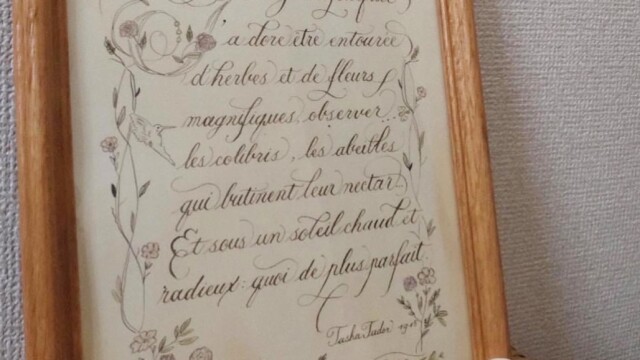 a dore être entourée
d'herbes et de fleurs
magnifiques, observer
les colibris, les abeilles
qui butinent leur nectar.
Et sous un soleil chaud et
radieux: quoi de plus parfait
Tasha Tudor